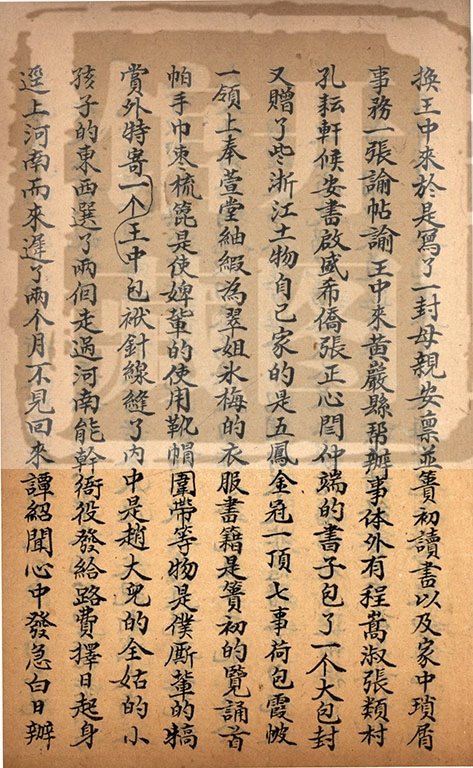 換王中來於是寫了一封母親安禀並簣初讀書以及家中瑣屑
事務一張諭帖諭王中來黃巖縣帮辦事体外有程嵩淑張類村
孔耘軒候安書啟盛希僑張正心閻仲端的書子包了一个大包封
又贈了些浙江土物自己家的是五鳳金冠一頂七事荷包霞帔
一領上奉萱堂紬緞為翠姐氷梅的衣服書籍是簣初的覽誦首
帕手巾枣梳篦是使婢輩的使用靴帽圍帶等物是僕厮輩的犒
賞外特寄一个王中包袱針線縫了內中是趙大兒的全姑的小
孩子的東西選了兩個走過河南能幹衙役發給路費擇日起身
逕上河南而來遲了兩个月不見回來譚紹聞心中發急白日辦